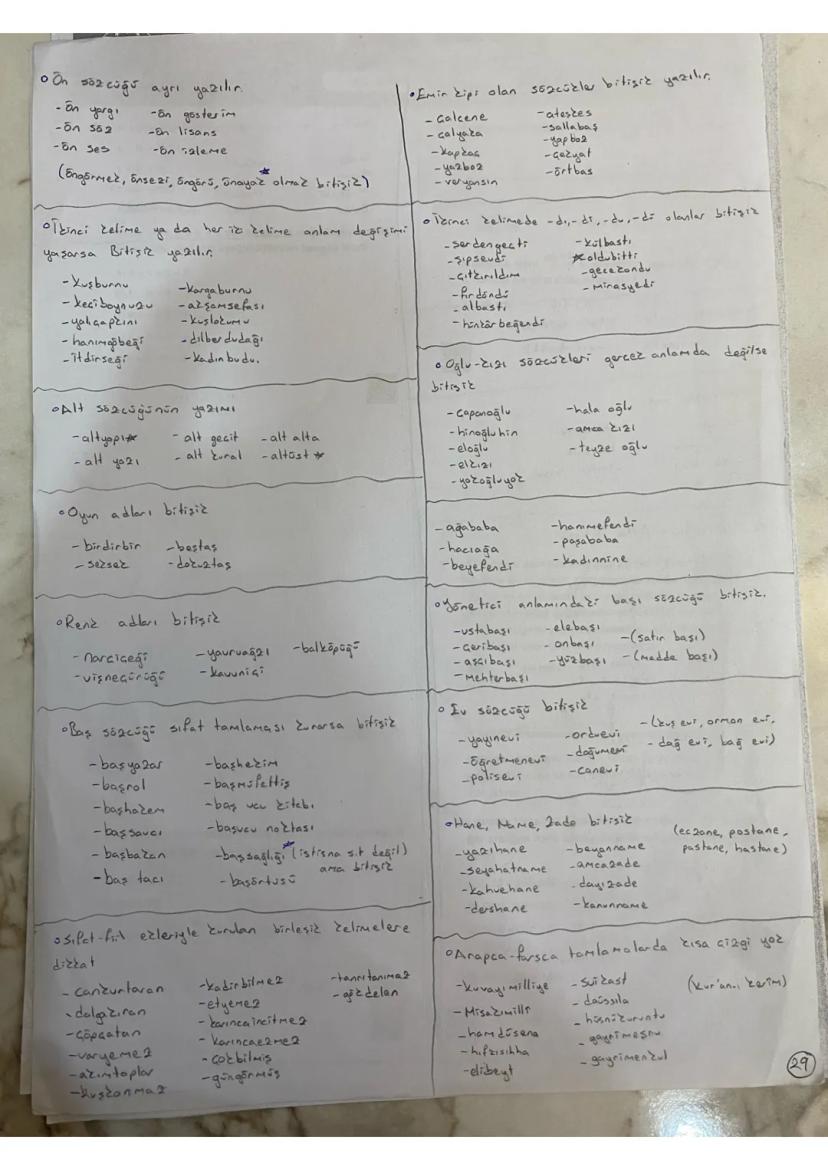 Ön sözcüğü ayrı yazılır.
- ön yargı - ön gösterim
- ön söz - ön lisans
- ön ses - ön izleme
(öngörmek, önsezi, öngörü, önayak olmak bitişik)
İkinci kelime ya da her iki kelime anlam değişimi
yaşarsa Bitişik yazılır.
- kuşburnu - kargaburnu
- keçiboynuzu - akşamsefası
- yalıçapkını - kuşlokumu
- hanımgöbeği - dilberdudağı
- itdirseği - kadınbudu.
Alt sözcüğünün yazımı
- altyapı - alt geçit - alt alta
- alt yazı - alt kural - altüst
Oyun adları bitişik
- birdirbir - beştaş
- seksek - dokuztaş
Renk adları bitişik
- narçiçeği - yavruağzı - balköpüğü
- vişneçürüğü - kavuniçi
Baş sözcüğü sıfat tamlaması kurarsa bitişik
- başyazar - başhekim
- başrol - başmüfettiş
- başhakem - baş ucu kitabı
- başsavcı - başucu noktası
- başbakan - başsağlığı (istisna s.t değil)
ama bitişik
- baş tacı - başörtüsü
Sıfat-fiil ekleriyle kurulan birleşik kelimelere
dikkat
- cankurtaran - kadirbilmez - tanrıtanımaz
- dalgakıran - etyemez - gökdelen
- çöpçatan - karıncaincitmez
- varyemez - karıncaezmez
- akımtoplar - çokbilmiş
- kuşkonmaz - güngörmüş
Emir kipi olan sözcükler bitişik yazılır.
- çalçene - ateşkes
- çalyaka - sallabaş
- kapkaç - yapboz
- yazboz - çekyat
- veryansın - örtbas
İkinci kelimede -dı, -di, -du, -dü olanlar bitişik
- serdengeçti - külbastı
- şıpsevdi - oldubitti
- çıtkırıldım - gecekondu
- fırdöndü - mirasyedi
- albastı
- hünkârbeğendi
Oğlu-kızı sözcükleri gerçek anlamda değilse
bitişik
- çapanoğlu - hala oğlu
- hinoğluhin - amca kızı
- eloğlu - teyze oğlu
- elkızı
- yokoğluyok
- ağababa - hanımefendi
- hacıağa - paşababa
- beyefendi - kadınnine
Yönetici anlamındaki başı sözcüğü bitişik.
- ustabaşı - elebaşı
- çeribaşı - onbaşı - (satır başı)
- aşçıbaşı - yüzbaşı - (madde başı)
- mehterbaşı
Ev sözcüğü bitişik
- yayınevi - orduevi - (kuş evi, orman evi,
- öğretmenevi - doğumevi - dağ evi, bağ evi)
- polisevi - canevi
Hane, Name, Zade bitişik
- yazıhane - beyanname (eczane, postane,
- seyahatname - amcazade pastane, hastane)
- kahvehane - dayızade
- dershane - kanunname
Arapça-farsça tamlamalarda kısa çizgi yok
- kuvayımilliye - suikast (kur'an-ı kerim)
- Misakımilli - daüssıla
- hamdüsena - hüsnükuruntu
- hıfzıssıhha - gayrimeşru
- elibeyt - gayrimenkul
29